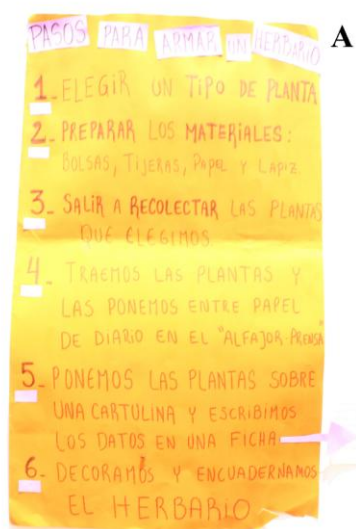 PASOS PARA ARMAR UN HERBARIO
A
1_ ELEGIR UN TIPO DE PLANTA
2_ PREPARAR LOS MATERIALES:
BOLSAS, TIJERAS, PAPEL Y LÁPIZ.
3_ SALIR A RECOLECTAR LAS PLANTAS
QUE ELEGIMOS.
4_ TRAEMOS LAS PLANTAS Y
LAS PONEMOS ENTRE PAPEL
DE DIARIO EN EL "ALFAJOR PRENSA"
5_ PONEMOS LAS PLANTAS SOBRE
UNA CARTULINA Y ESCRIBIMOS
LOS DATOS EN UNA FICHA
6_ DECORAMOS Y ENCUADERNAMOS
EL HERBARIO